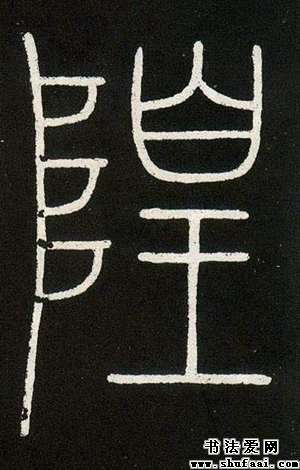 隍
书法爱网
www.shufaai.com